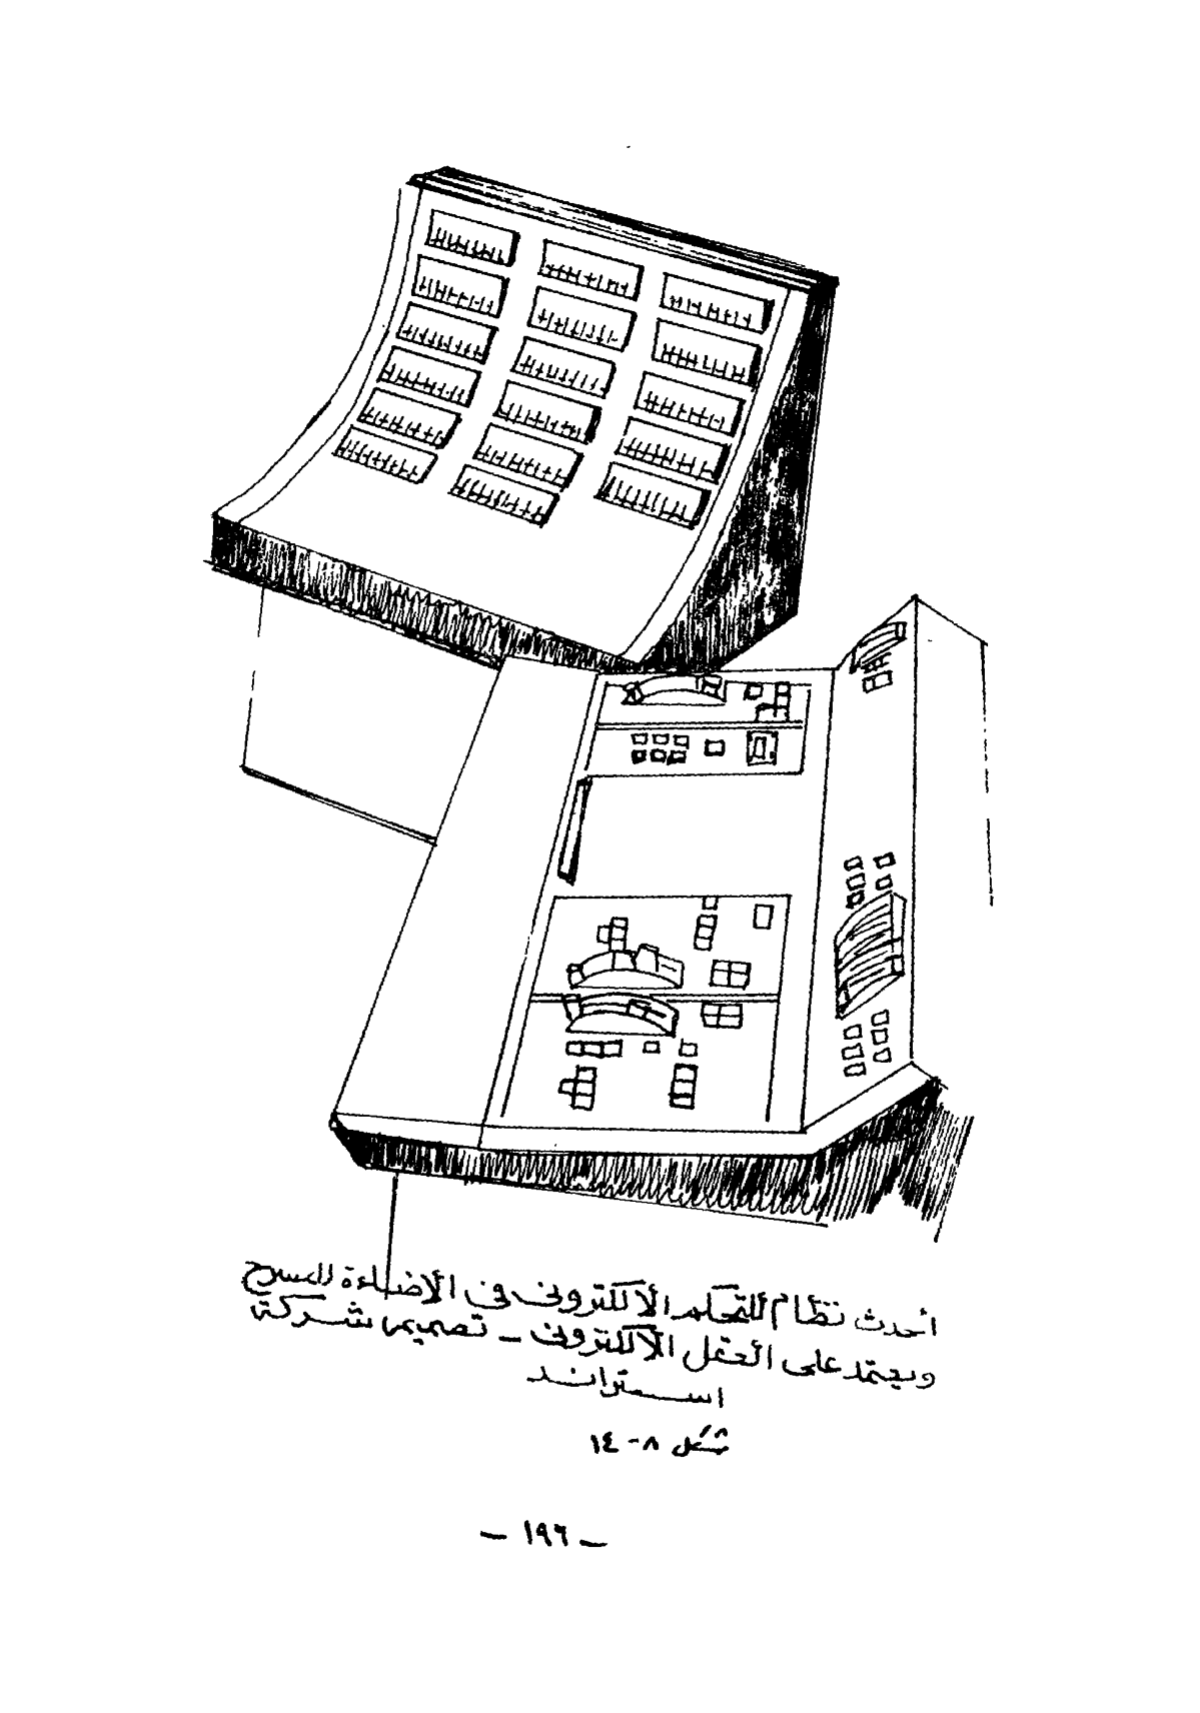 أحدث نظام للتحكم الألكترونى فى الأضاءة للمسرح
ويعتمد على العقل الألكترونى - تصميم شركة
استراند
شكل ٨-١٤
- ١٩٦ -